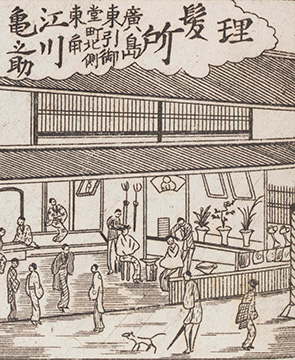 理髪所
廣島
東引御
堂町北側
東角
江川
亀之助